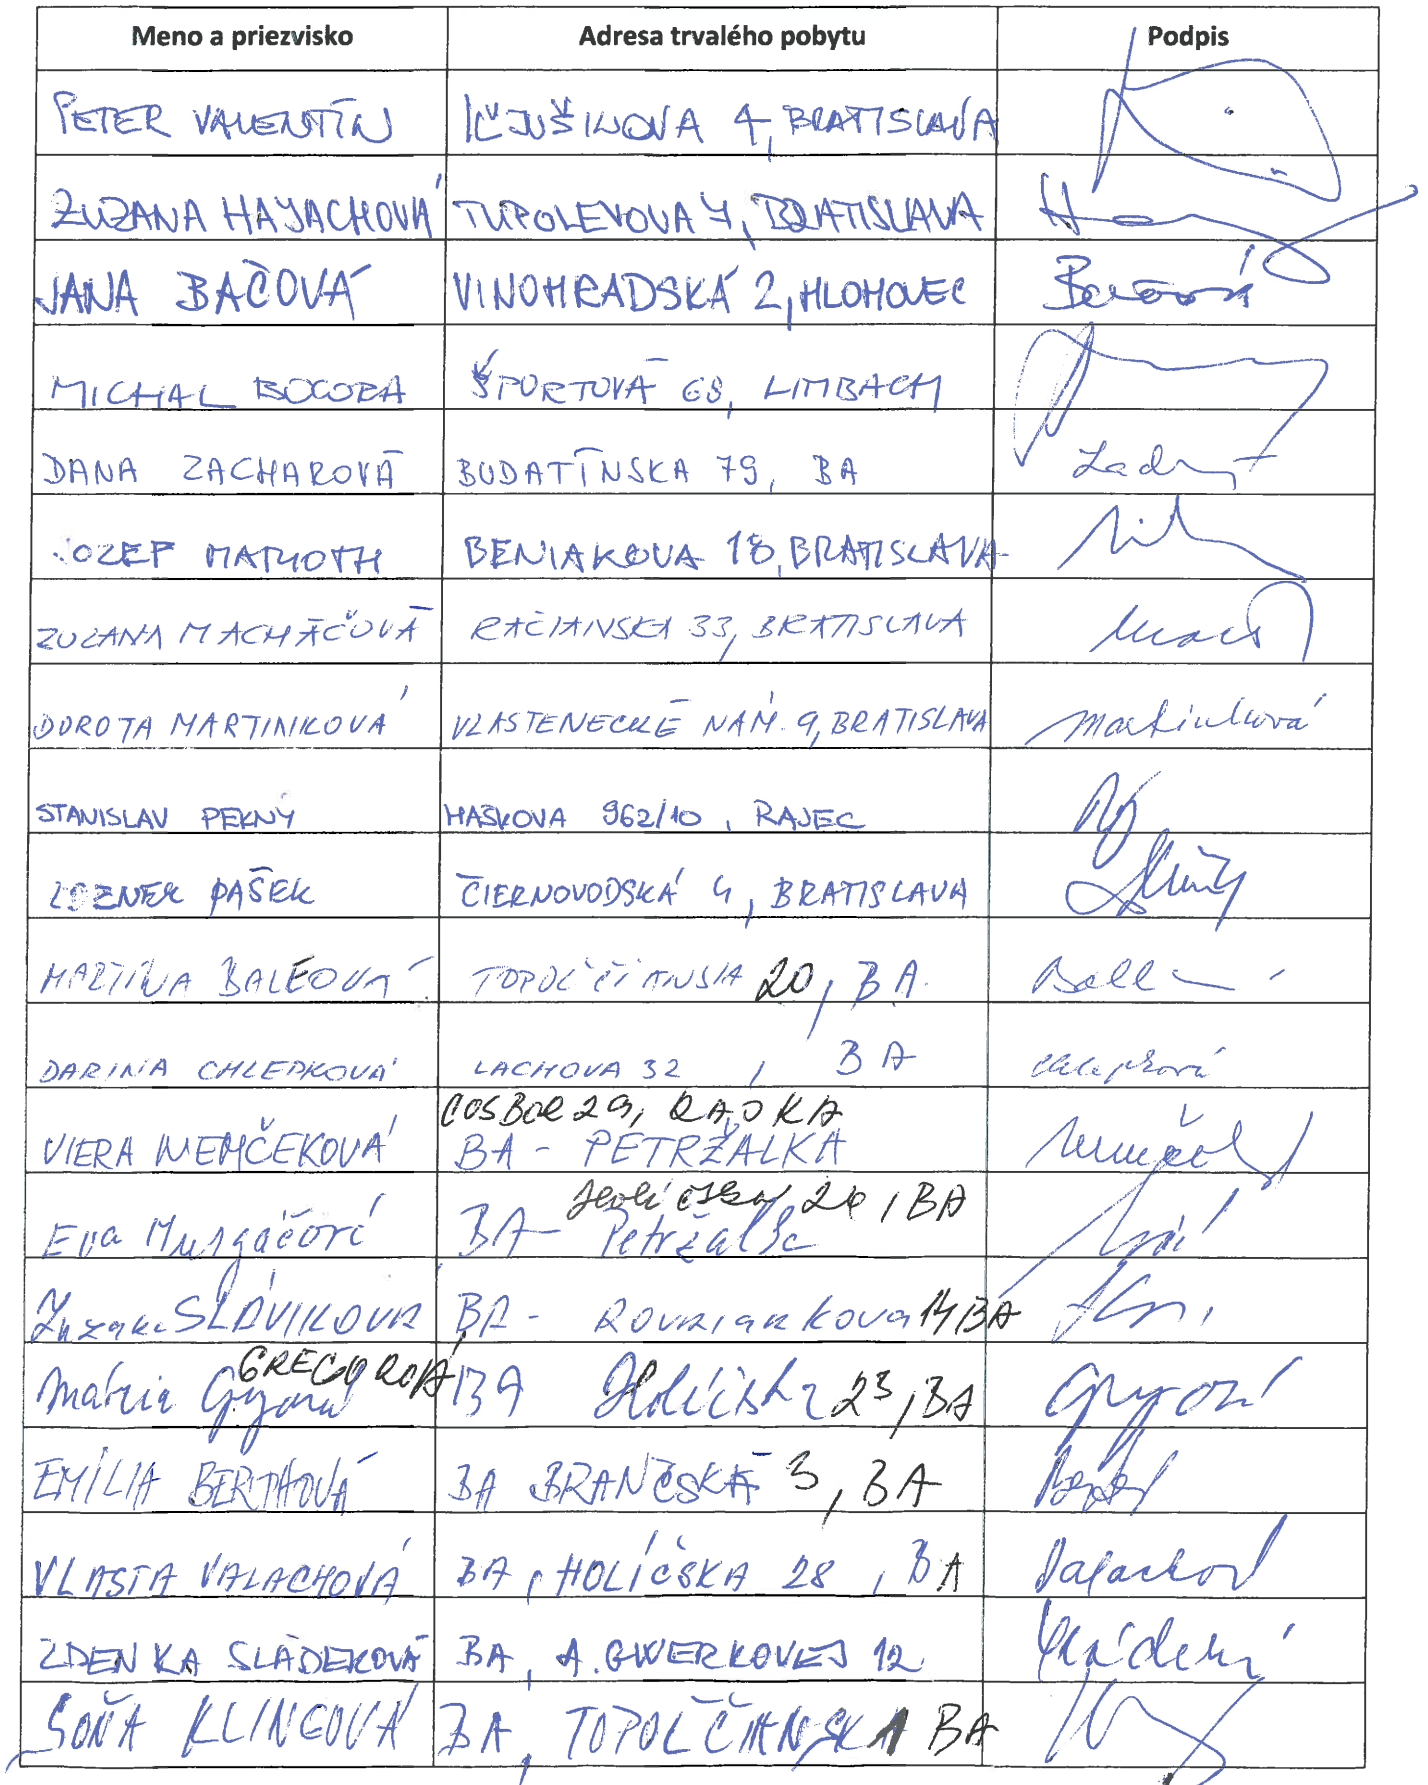 Meno a priezvisko Adresa trvalého pobytu Podpis
PETER VALENTÍN IĽJUŠINOVA 4, BRATISLAVA
ZUZANA HAJACHOVÁ TUPOLEVOVA 7, BRATISLAVA
JANA BAČOVÁ VINOHRADSKÁ 2, HLOHOVEC
MICHAL BOCORA ŠPORTOVÁ 68, LIMBACH
DANA ZACHAROVÁ BUDATÍNSKA 79, BA
JOZEF BENIAKOVA 18, BRATISLAVA
ZUZANA MACHÁČOVÁ RAČIANSKA 33, BRATISLAVA
DOROTA MARTINKOVÁ VLASTENECKÉ NÁM. 9, BRATISLAVA Martinková
STANISLAV PEKNÝ HAŠKOVA 962/10, RAJEC
ZDENEK PAŠEK ČIERNOVODSKÁ 4, BRATISLAVA
MARTINA TOPOĽČIANSKA 20, BA
DARINA CHLEPKOVÁ LACHOVA 32, BA Chlepková
COSBOR 29, RAJKA
VIERA NEMČEKOVÁ BA - PETRŽALKA
Holíčska 26, BA
Eva BA - Petržalka
Zuzana SLÁVIKOVÁ BA - Rovniankova 14 BA
GREGOROVÁ
Mária BA Holíčska 23, BA
EMÍLIA BERTHOVÁ BA BRANČSKÁ 3, BA
VLASTA VALACHOVÁ BA, HOLÍČSKA 28, BA Valachová
ZDENKA SLÁDEKOVÁ BA, A. GWERKOVEJ 12
SOŇA KLINGOVÁ BA, TOPOĽČIANSKA 1 BA